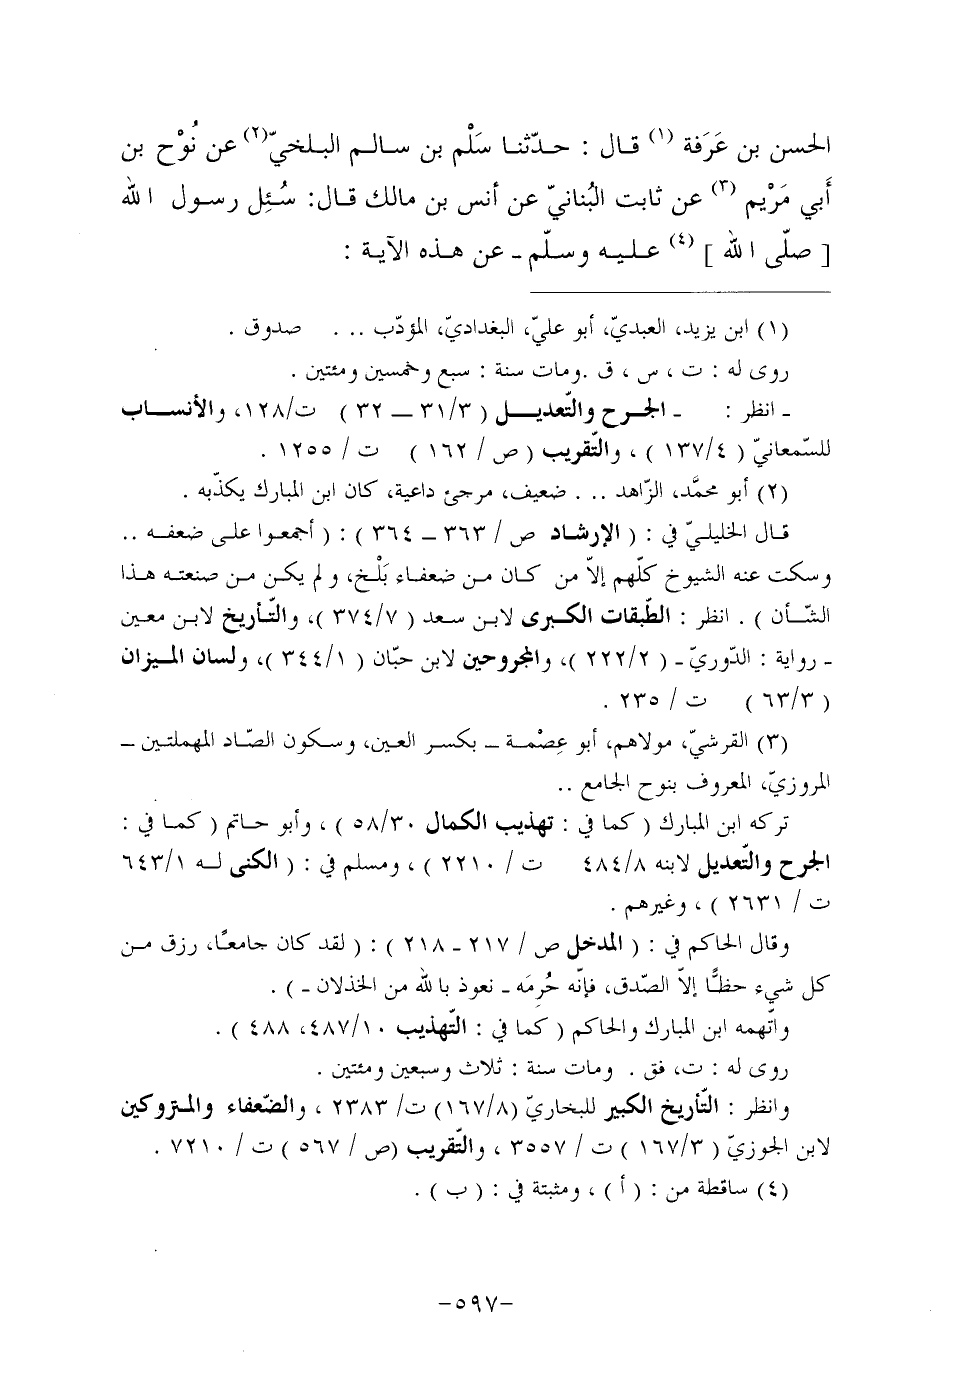 الحسن بن عَرَفة (١) قال : حدّثنا سَلْم بن سالم البلخيّ(٢) عن نُوْح بن
أبي مَرْيم (٣) عن ثابت البُنانيّ عن أنس بن مالك قال: سُئِل رسول الله
[ صلّى الله ] (٤) عليه وسلّم - عن هذه الآية :
(١) ابن يزيد، العبديّ، أبو عليّ، البغداديّ، المؤدّب .. . صدوق .
روى له : ت ، س ، ق .ومات سنة : سبع وخمسين ومئتين .
- انظر : - الجرح والتّعديل ( ٣١/٣ – ٣٢ ) ت/١٢٨، والأنساب
للسّمعانيّ ( ١٣٧/٤ ) ، والتّقريب ( ص / ١٦٢ ) ت / ١٢٥٥ .
(٢) أبو محمَّد، الزّاهد .. . ضعيف، مرجئ داعية، كان ابن المبارك يكذّبه .
قال الخليليّ في : ( الإرشاد ص / ٣٦٣ – ٣٦٤ ) : ( أجمعوا على ضعفه ..
وسكت عنه الشيوخ كلّهم إلاّ من كان من ضعفاء بَلْخ، و لم يكن من صنعته هذا
الشّأن ) . انظر : الطّبقات الكبرى لابن سعد ( ٣٧٤/٧ )، والتّأريخ لابن معين
- رواية : الدّوريّ - ( ٢٢٢/٢ )، والمجروحين لابن حبّان ( ٣٤٤/١ )، ولسان الميزان
( ٦٣/٣ ) ت / ٢٣٥ .
(٣) القرشيّ، مولاهم، أبو عِصْمة – بكسر العين، وسكون الصّاد المهملتين –
المروزيّ، المعروف بنوح الجامع ..
تركه ابن المبارك ( كما في : تهذيب الكمال ٥٨/٣٠ ) ، وأبو حاتم ( كما في :
الجرح والتّعديل لابنه ٤٨٤/٨ ت / ٢٢١٠ ) ، ومسلم في : ( الكنى له ٦٤٣/١
ت / ٢٦٣١ ) ، وغيرهم .
وقال الحاكم في : ( المدخل ص / ٢١٧ - ٢١٨ ) : ( لقد كان جامعًا، رزق من
كل شيء حظًّا إلاّ الصّدق، فإنّه حُرِمَه - نعوذ بالله من الخذلان - ) .
واتّهمه ابن المبارك والحاكم ( كما في : التّهذيب ٤٨٧/١٠، ٤٨٨ ) .
روى له : ت، فق . ومات سنة : ثلاث وسبعين ومئتين .
وانظر : التّأريخ الكبير للبخاريّ (١٦٧/٨) ت/ ٢٣٨٣ ، والضّعفاء والمتروكين
لابن الجوزيّ ( ١٦٧/٣ ) ت / ٣٥٥٧ ، والتّقريب (ص / ٥٦٧ ) ت / ٧٢١٠ .
(٤) ساقطة من : ( أ ) ، ومثبتة في : ( ب ) .
-٥٩٧-